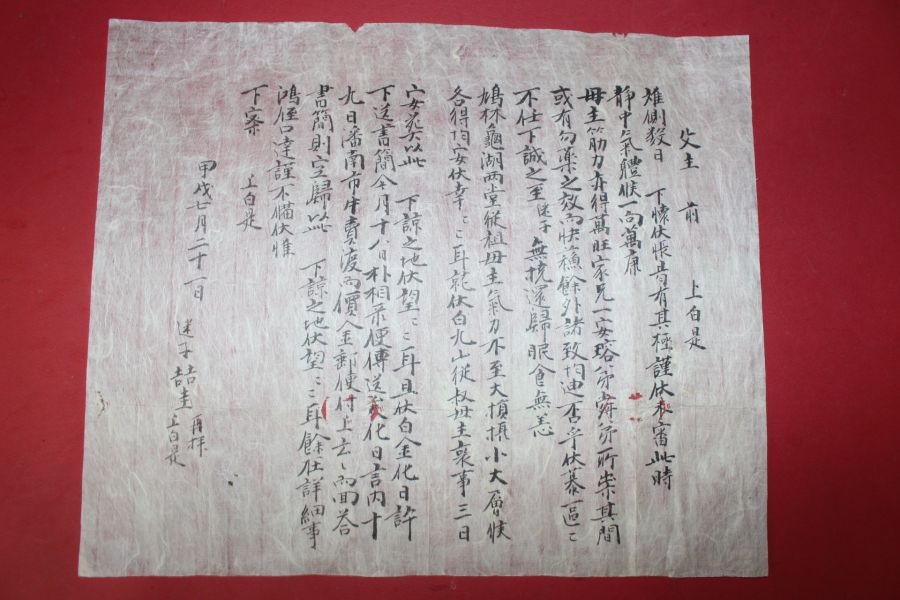 父主 前 上白是
離側發日 下懷伏悵背有其極謹伏未審此時
靜中氣體候一向萬康
母主筋力亦得萬旺家兄一安瑢弟 弟所祟其間
或有勿藥之效而快 餘外諸致均迪否辛伏慕區〻
不任下誠之至迷子無撓還歸眠食無恙
鳩林龜湖兩堂從祖母主氣力不至大損攝小大層候
各得均安伏幸〻〻耳就伏白九山從叔母主喪事三日
安葬以此 下諒之地伏望〻〻耳且伏白金化日許
下送書簡今月十八日朴相彔便傳送矣化日言內十
九日潘南市牛賣渡而價金郵便付上云〻而回答
書簡則空歸以此 下諒之地伏望〻〻耳餘在詳細事
鴻侄口達謹不備伏惟
下察 上白是
甲戌七月二十一日 迷子喆圭 再拜
上白是